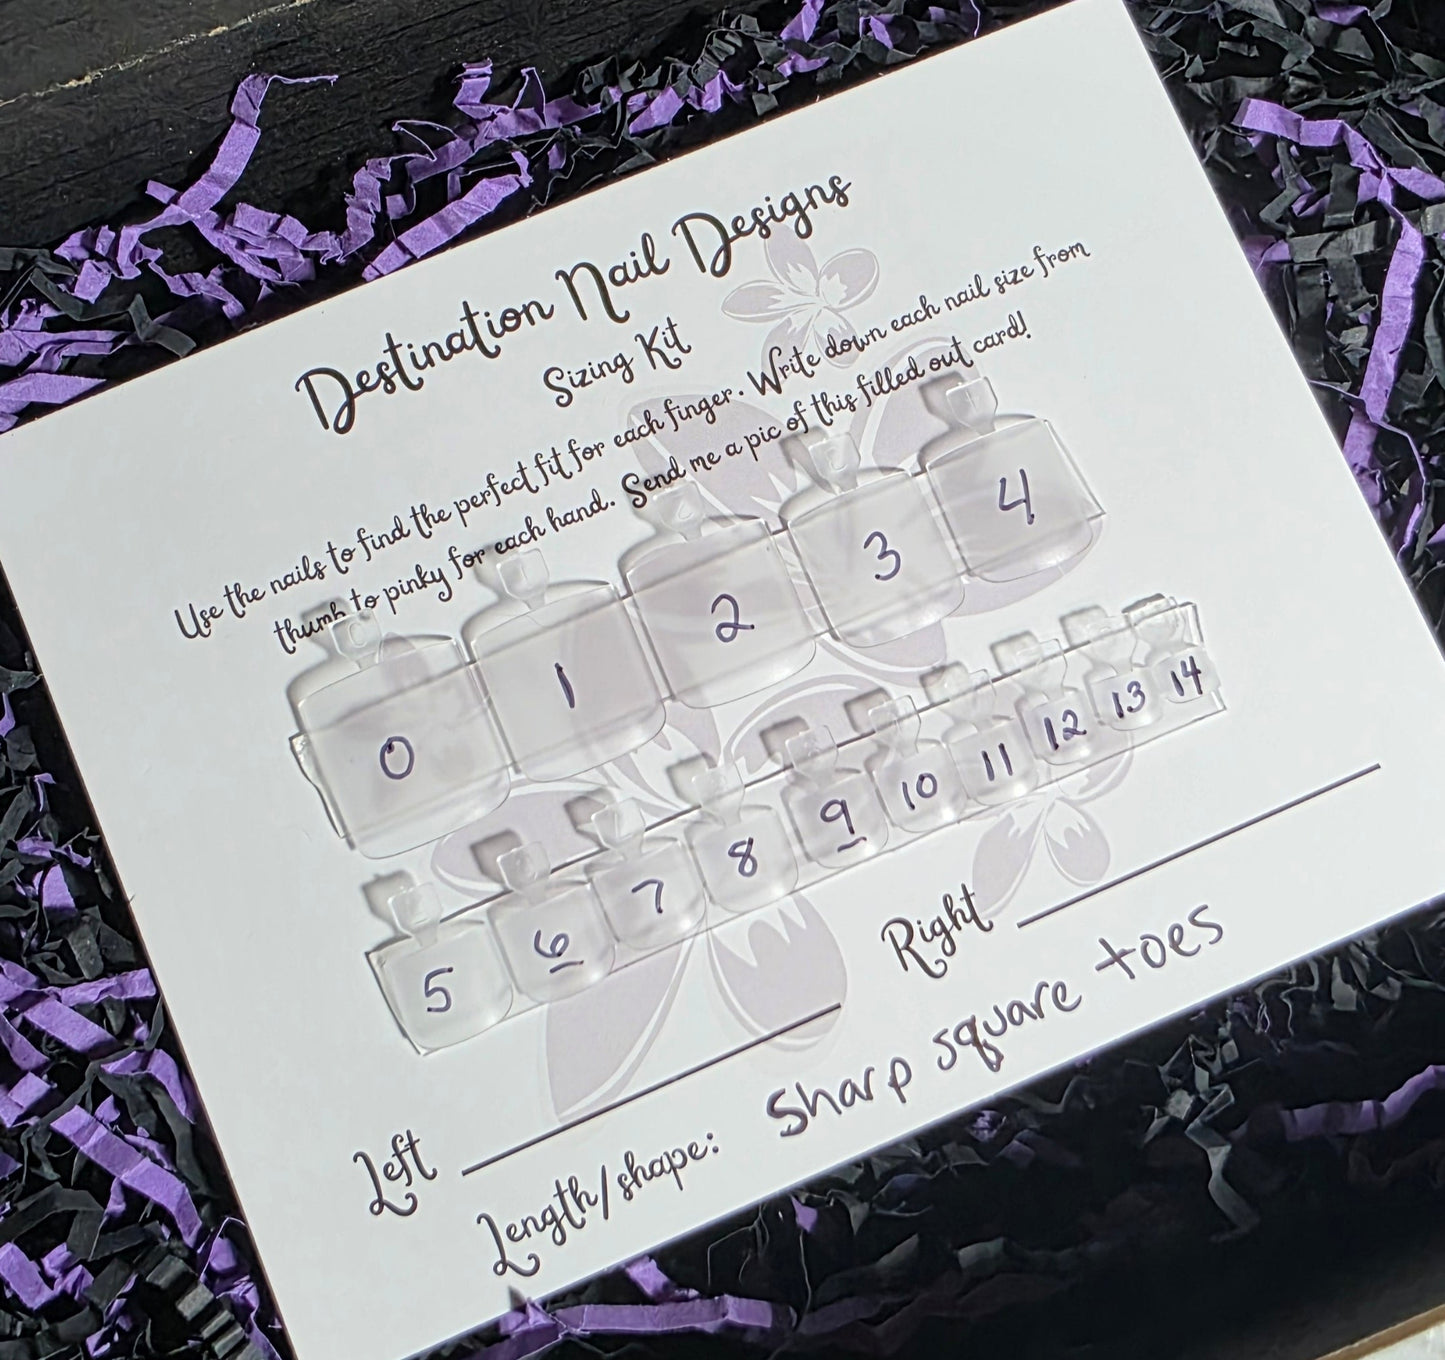 Destination Nail Designs
Sizing Kit
Use the nails to find the perfect fit for each finger. Write down each nail size from
thumb to pinky for each hand. Send me a pic of this filled out card!
0 1 2 3 4
5 6 7 8 9 10 11 12 13 14
Left Right
Length/shape: Sharp square toes